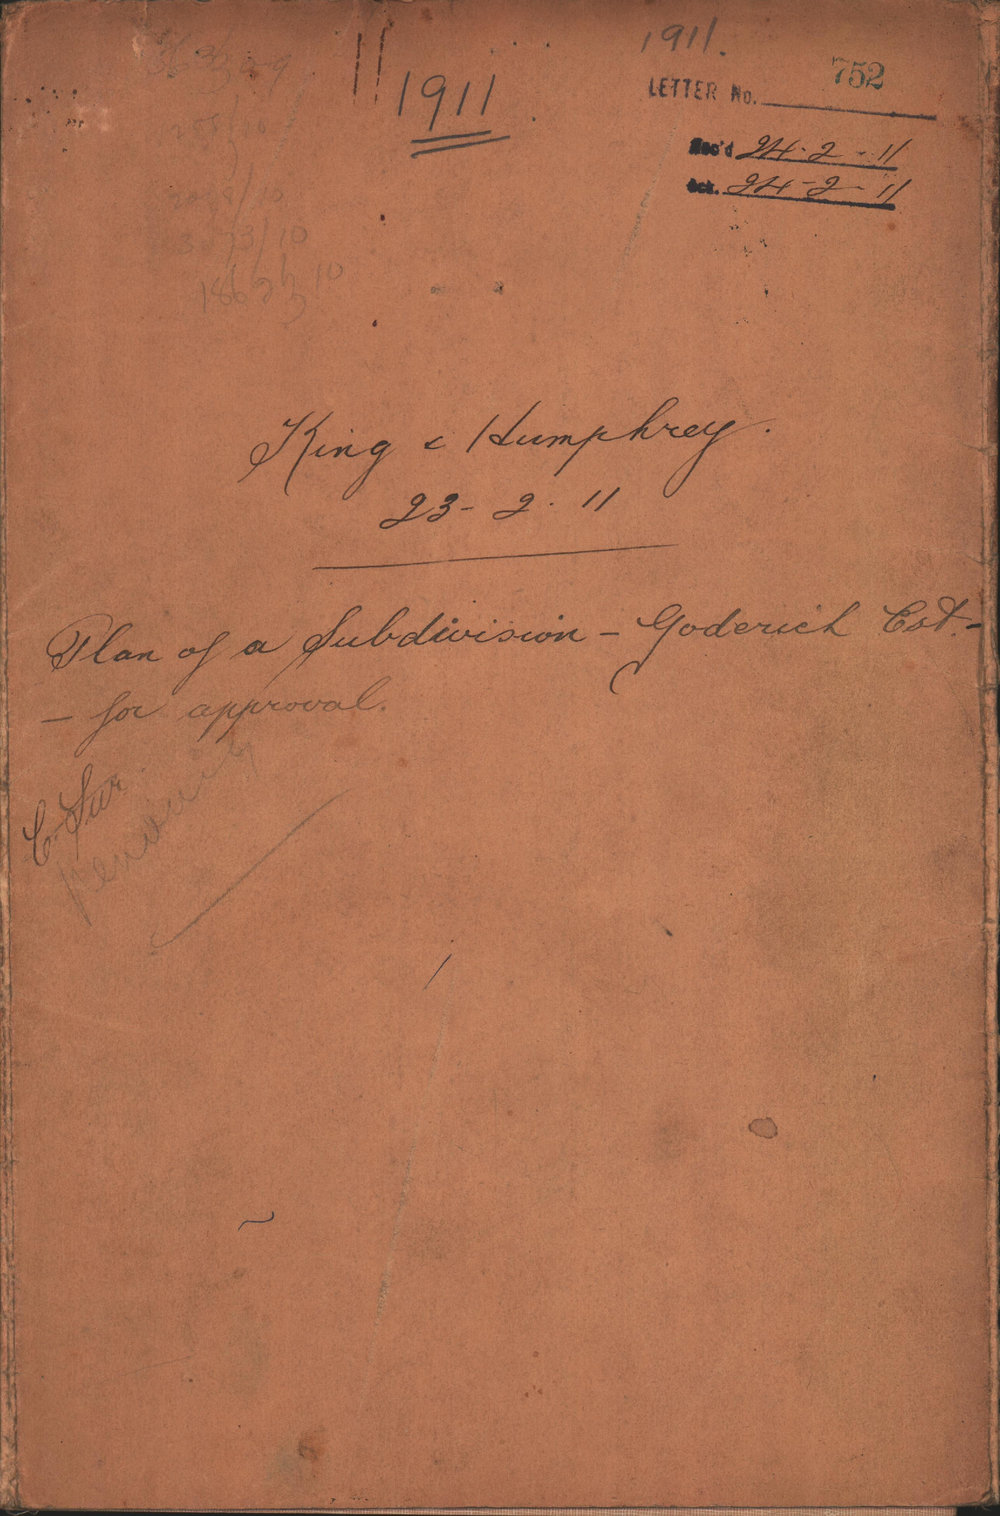 1911.
11
1911
LETTER No. 752
Rec'd 24-2-11
Ack. 24-2-11
/10
/10
King & Humphrey.
23-2.11
Plan of a Subdivision - Goderich Est. -
- for approval.
C. Sur